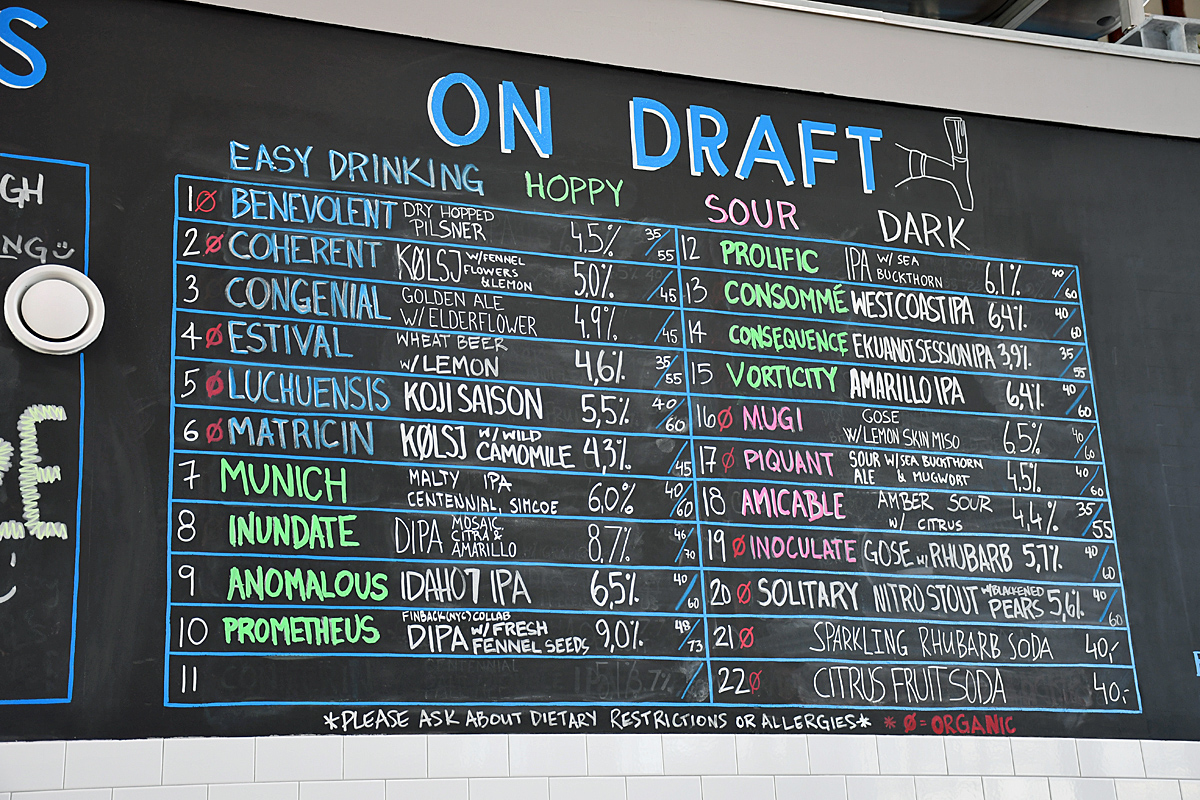 S
GH
NG
E
ON DRAFT
EASY DRINKING HOPPY SOUR DARK
1 Ø BENEVOLENT DRY HOPPED PILSNER 4.5% 35/55
2 Ø COHERENT KØLSJ W/FENNEL FLOWERS & LEMON 5.0% /45
3 CONGENIAL GOLDEN ALE W/ELDERFLOWER 4.9% /45
4 Ø ESTIVAL WHEAT BEER W/LEMON 4,6% 35/55
5 Ø LUCHUENSIS KOJI SAISON 5,5% 40/60
6 Ø MATRICIN KØLSJ W/WILD CAMOMILE 4,3% /45
7 MUNICH MALTY IPA CENTENNIAL, SIMCOE 6.0% 40/60
8 INUNDATE DIPA MOSAIC, CITRA & AMARILLO 8,7% 46/70
9 ANOMALOUS IDAHO 7 IPA 6,5% 40/60
10 PROMETHEUS FINBACK (NYC) COLLAB DIPA W/FRESH FENNEL SEEDS 9,0% 48/73
11
12 PROLIFIC IPA W/SEA BUCKTHORN 6,1% 40/60
13 CONSOMMÉ WEST COAST IPA 6,4% 40/60
14 CONSEQUENCE EKUANOT SESSION IPA 3,9% 35/55
15 VORTICITY AMARILLO IPA 6,4% 40/60
16 Ø MUGI GOSE W/LEMON SKIN MISO 6.5% 40/60
17 Ø PIQUANT SOUR ALE W/SEA BUCKTHORN & MUGWORT 4.5% 40/60
18 AMICABLE AMBER SOUR W/ CITRUS 4,4% 35/55
19 Ø INOCULATE GOSE W/ RHUBARB 5,7% 40/60
20 Ø SOLITARY NITRO STOUT W/BLACKENED PEARS 5,6% 40/60
21 Ø SPARKLING RHUBARB SODA 40,-
22 Ø CITRUS FRUIT SODA 40,-
*PLEASE ASK ABOUT DIETARY RESTRICTIONS OR ALLERGIES* * Ø = ORGANIC